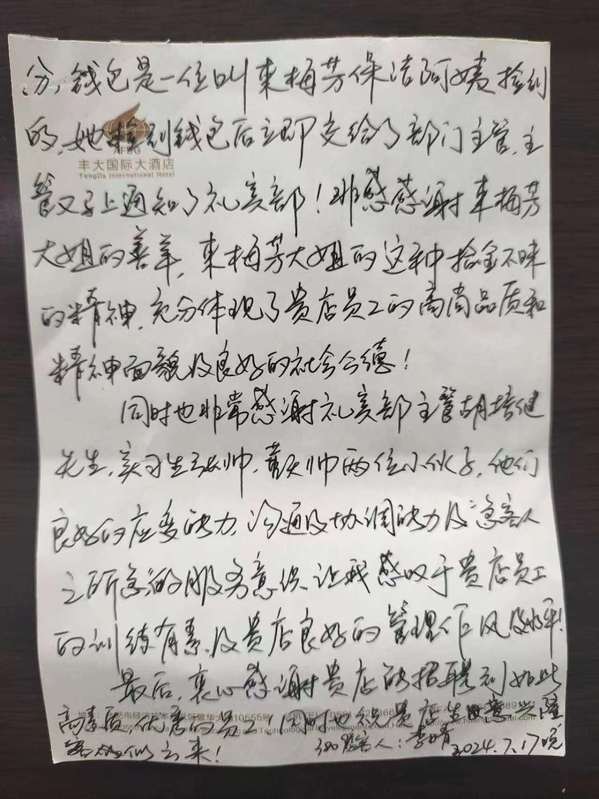 分，钱包是一位叫来梅芳保洁阿姨捡到
的，她捡到钱包后立即交给了部门主管，主
丰大国际大酒店
Fengda International Hotel
管又马上通知了礼宾部！非感感谢来梅芳
大姐的善举，来梅芳大姐的这种拾金不昧
的精神，充分体现了贵店员工的高尚品质和
精神面貌及良好的社会公德！
同时也非常感谢礼宾部主管胡培健
先生，实习生 帅，戴天帅两位小伙子，他们
良好的应变能力，沟通及协调能力及“急客人
之所急”的服务意识，让我感叹于贵店员工
的训练有素，及贵店良好的管理作风及水平！
最后，衷心感谢贵店能招聘到如此
高素质、优秀的员工！同时也祝贵店生意兴隆
客 似云来！
客人：李晴 2024.7.17晚